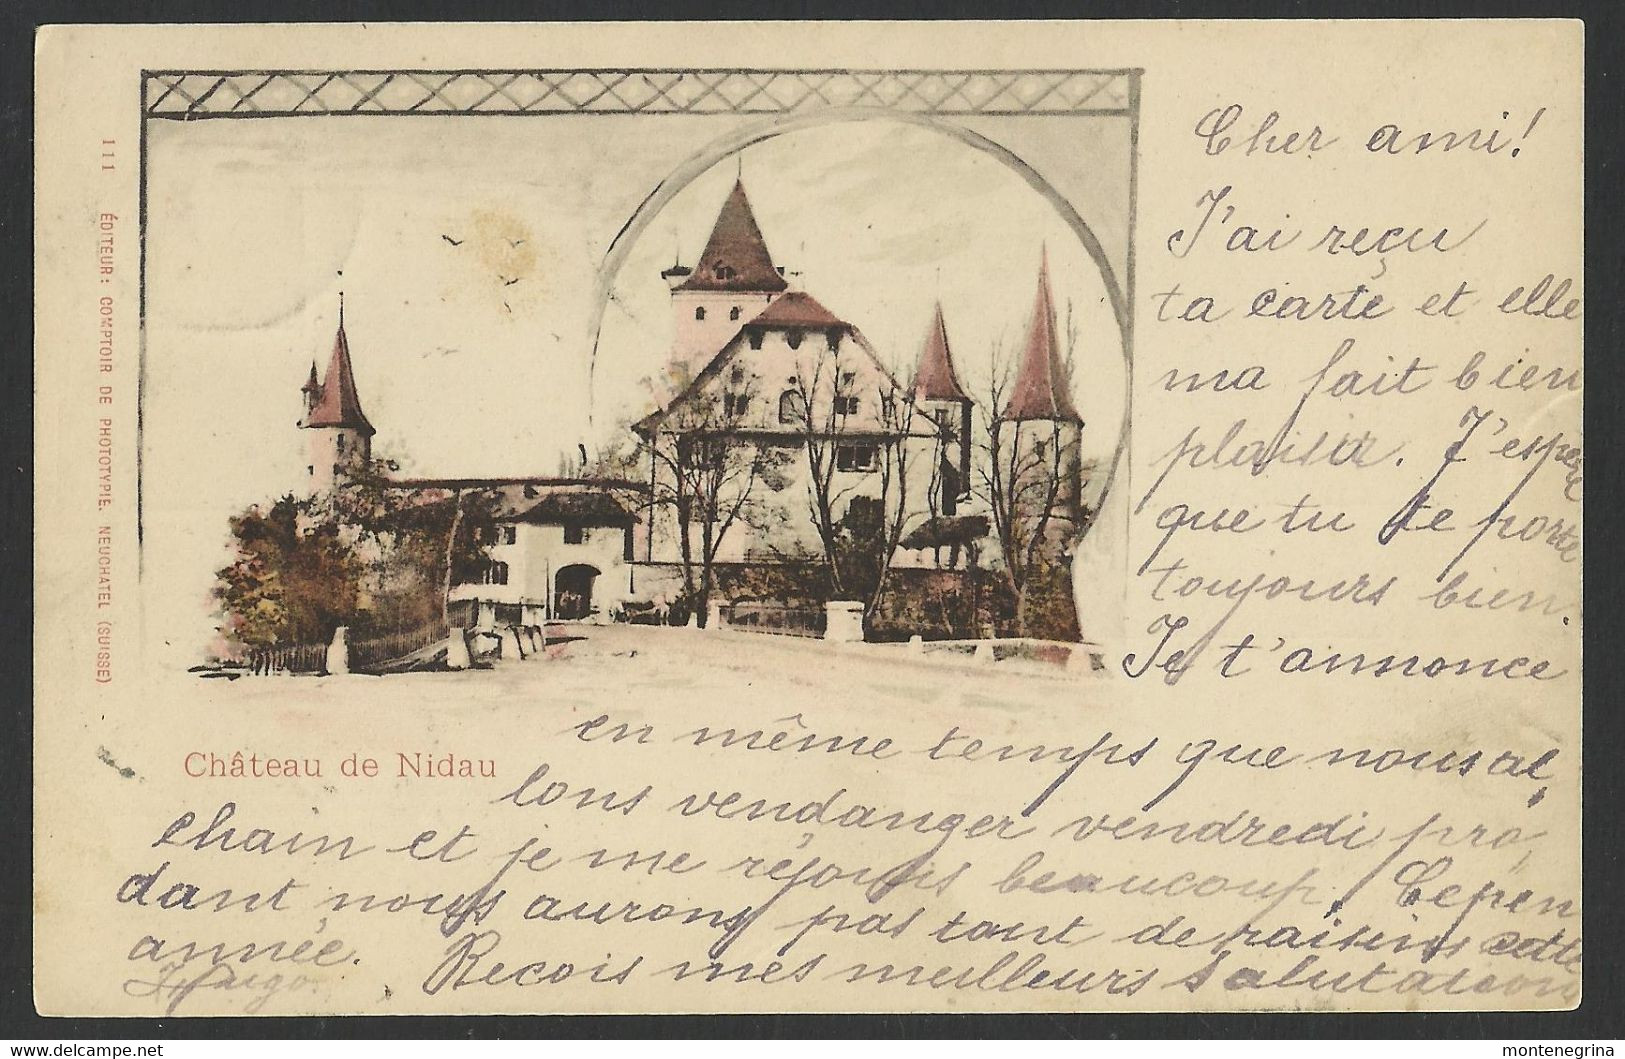 111 ÉDITEUR: COMPTOIR DE PHOTOTYPIE. NEUCHATEL (SUISSE)
Château de Nidau
Cher ami!
J'ai reçu
ta carte et elle
ma fait bien
plaisir. J'espère
que tu te porte
toujours bien.
Je t'annonce
en même temps que nous al„
lons vendanger vendredi pro„
chain et je me réjouis beaucoup. Cepen
dant nous aurons pas tant de raisins cette
année. Recois mes meilleurs salutations
montenegrina
www.delcampe.net